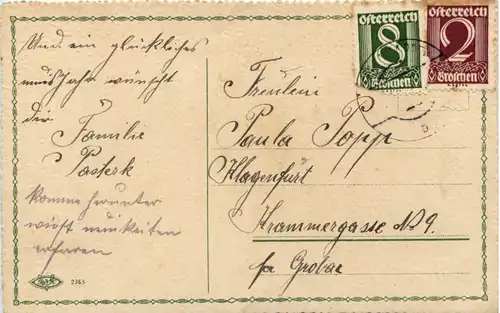 Und ein glückliches
neusJahr wünscht
die
Familie
Pasterk
komme herunter
wirst neuikeiten
erfaren
2365
Österreich
8
Groschen
Österreich
2
Groschen
Fräulein
Paula Popp
Klagenfurt
Krammergasse N 9.